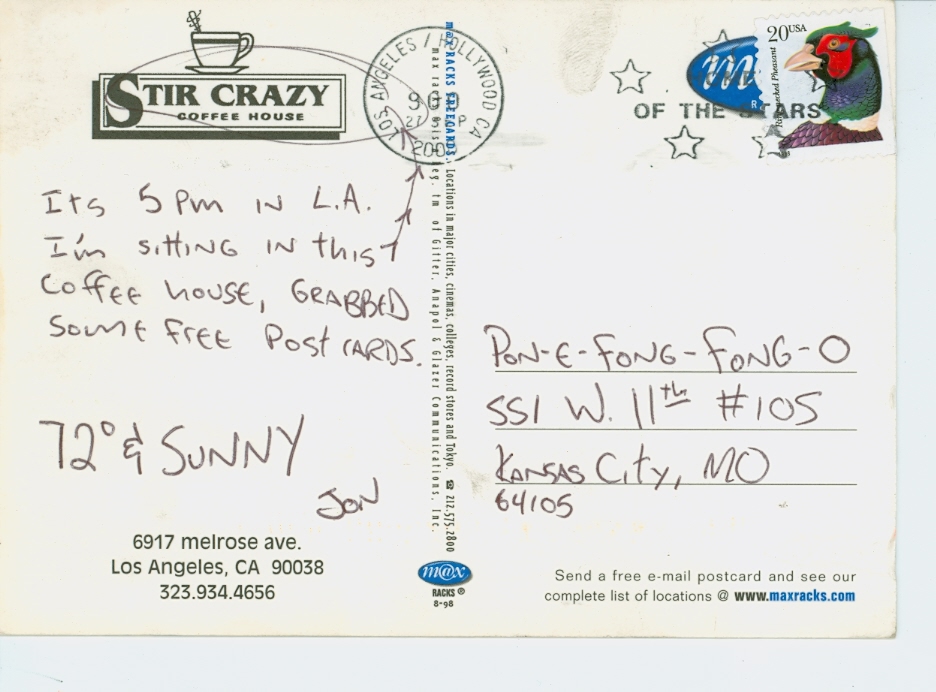 STIR CRAZY
COFFEE HOUSE
LOS ANGELES / HOLLYWOOD CA
900
27
P
m@x RACKS FREECARDS.
Locations in major cities, cinemas, colleges, record stores and Tokyo. ☎ 212.575.2800
eg. tm of Gitter, Anapol & Glazer Communications, Inc.
20USA
Ring-necked Pheasant
m
R
OF THE STARS
Its 5 pm in L.A.
I'm sitting in this
Coffee house, GRABBED
some free Post CARDS.
72° & SUNNY
JON
6917 melrose ave.
Los Angeles, CA 90038
323.934.4656
m@x
RACKS ®
8-98
PON-E-FONG-FONG-O
551 W. 11th #105
KANSAS City, MO
64105
Send a free e-mail postcard and see our
complete list of locations @ www.maxracks.com